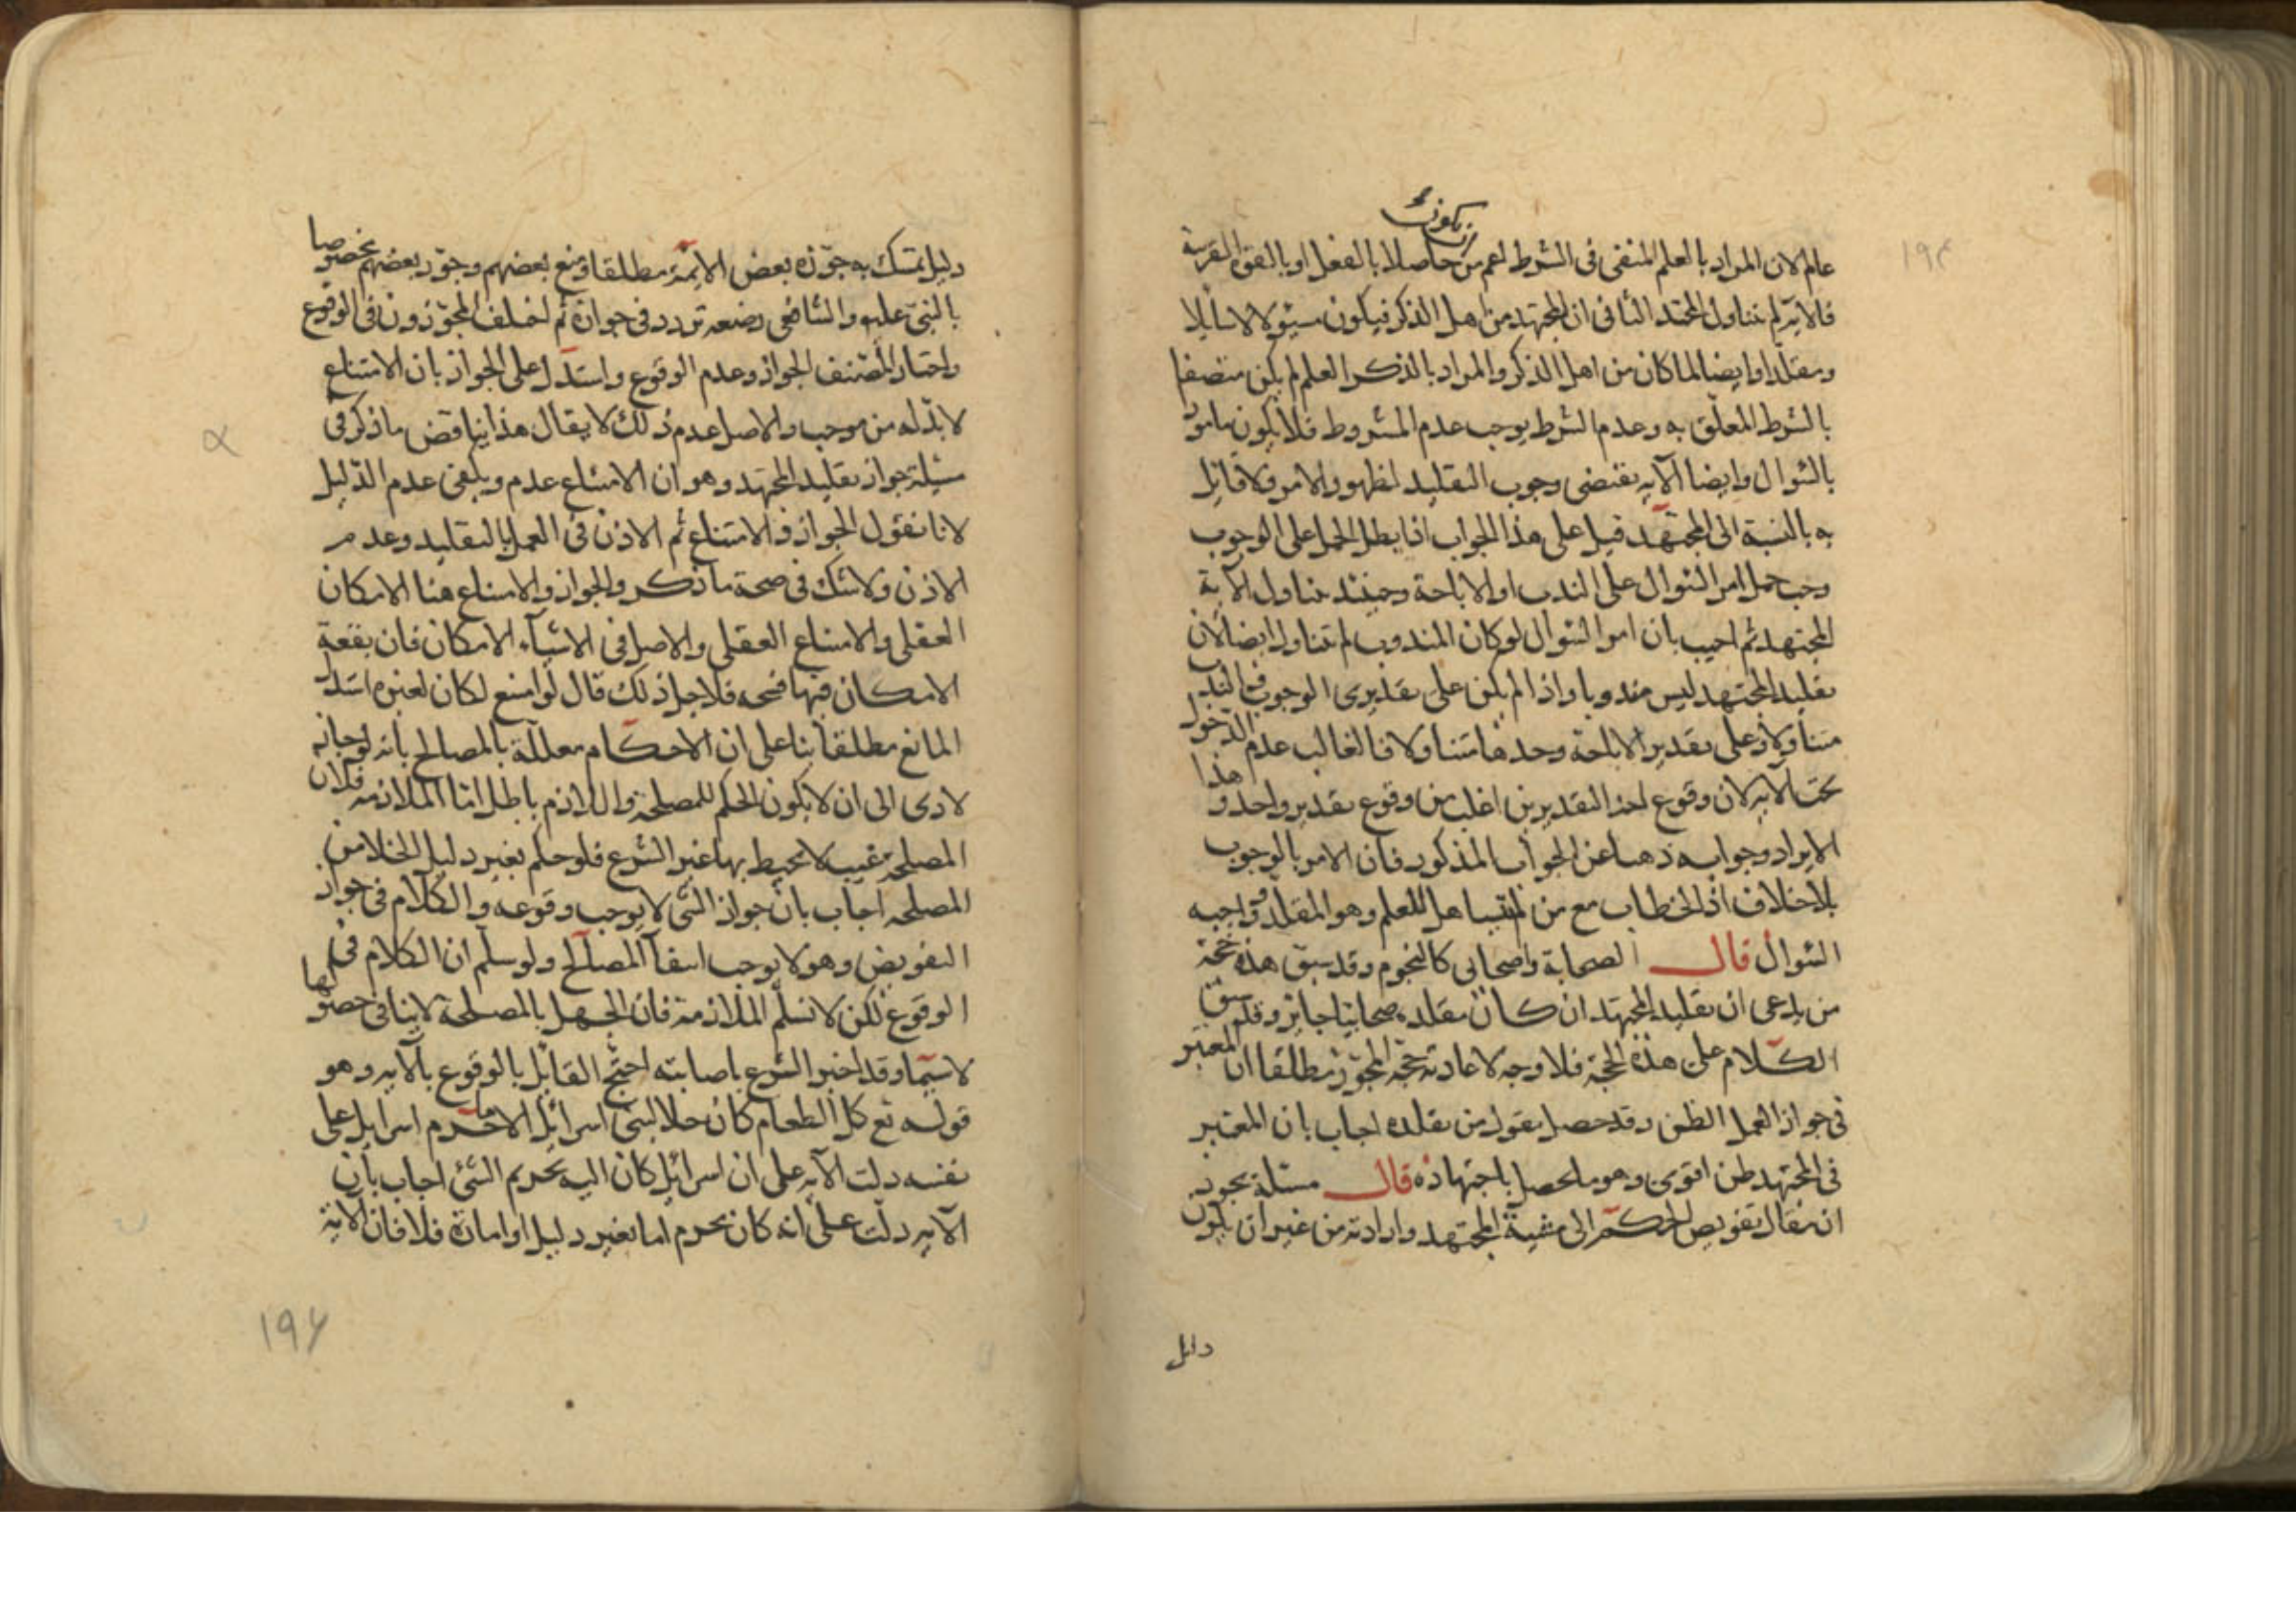 يكون
عالم لان المراد بالعلم المنفى فى الشرط اعم من حاصلا بالفعل او بالقوة القريبة
فالاية لم تتناول المجتهد الثانى ان المجتهد من اهل الذكر فيكون مسئولا لا سايلا
ومقلدا وايضا لما كان من اهل الذكر والمراد بالذكر العلم لم يكن متصفا
بالشرط المعلق به وعدم الشرط يوجب عدم المشروط فلا يكون مامورا
بالسؤال وايضا الآية تقتضى وجوب التقليد لظهور الامر ولا قائل
به بالنسبة الى المجتهد قيل على هذا الجواب اذا بطل الحمل على الوجوب
وجب حمل امر السؤال على الندب او الاباحة وحينئذ يتناول الآية
المجتهد ثم اجيب بان امر السؤال لو كان المندوب لم تتناوله ايضا لان
تقليد المجتهد ليس مندوبا واذا لم يكن على تقديرى الوجوب والندب
متناولا وعلى تقدير الاباحة وحدها متناولا فالغالب عدم الدخول
تحت الآية لان وقوع احد التقديرين اغلب من وقوع تقدير واحد وهذا
الايراد وجوابه ذهبا عن الجواب المذكور فان الامر بالوجوب
بلا خلاف اذ الخطاب مع من ليس اهلا للعلم وهو المقلد وواجبه
السؤال قال الصحابة واصحابى كالنجوم وقد سبق هذه حجة
من يدعى ان تقليد المجتهد ان كان مقلده صحابيا جايز وقد سبق
الكلام على هذه الحجة فلا وجه لاعادته حجة المجوز مطلقا ان المعتبر
فى جواز العمل الظن وقد حصل بقول من تقلده اجاب بان المعتبر
فى المجتهد ظن اقوى وهو ما يحصل باجتهاده قال مسئلة يجوز
ان يقال تفويض الحكم الى مشية المجتهد وارادته من غير ان يكون
دليل
دليل يتمسك به جوزه بعض الائمة مطلقا ومنع بعضهم وجوز بعضهم مخصوصا
بالنبى عليه والشافعى رضعه تردد فى جوازه ثم اختلف المجوزون فى الوقوع
واختار المصنف الجواز وعدم الوقوع واستدل على الجواز بان الامتناع
لا بد له من موجب والاصل عدم ذلك لا يقال هذا يناقض ما ذكر فى
مسئلة جواز تقليد المجتهد وهو ان الامتناع عدم ويكفى عدم الدليل
لانا نقول الجواز والامتناع ثم الاذن فى العمل بالتقليد وعدم
الاذن ولا شك فى صحة ما ذكر والجواز والامتناع هنا الامكان
العقلى والامتناع العقلى والاصل فى الاشياء الامكان فان بقعة
الامكان فيها فسحة فلاجل ذلك قال لو امتنع لكان لغيره استدل
المانع مطلقا بنا على ان الاحكام معللة بالمصالح بانه لو جاز
لادى الى ان لا يكون الحكم للمصلحة واللازم باطل اما الملازمة فلان
المصلحة غيب لا يحيط بها غير الشرع فلو حكم بغير دليل لخلا من
المصلحة اجاب بان جواز الشى لا يوجب وقوعه والكلام فى جواز
التفويض وهو لا يوجب انتفا المصالح ولو سلم ان الكلام فى
الوقوع لكن لا نسلم الملازمة فان الجهل بالمصلحة لا ينافى حصولها
لا سيما وقد اخبر الشرع باصابته احتج القايل بالوقوع بالآية وهو
قوله تع كل الطعام كان حلا لبنى اسرائيل الا ما حرم اسرايل على
نفسه دلت الآية على ان اسرائيل كان اليه تحريم الشئ اجاب بان
الآية دلت على انه كان يحرم اما بغير دليل او امارة فلا فان الاية
١٩٦